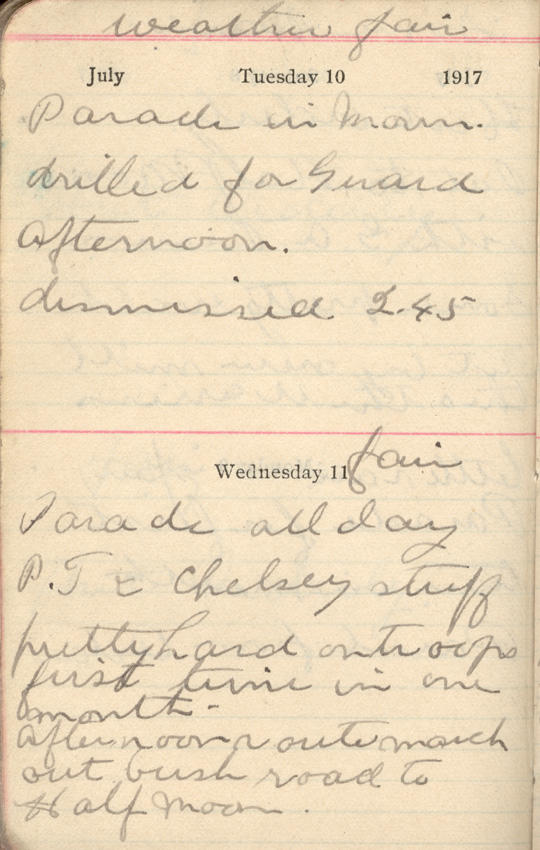 weather fair
July Tuesday 10 1917
Parade in Morn.
drilled for Guard
afternoon.
dismissed 2.45
fair
Wednesday 11
Parade all day
P.T & Chelsey stuff
pretty hard on troops
first time in one
month.
afternoon route march
out bush road to
Half Moon.